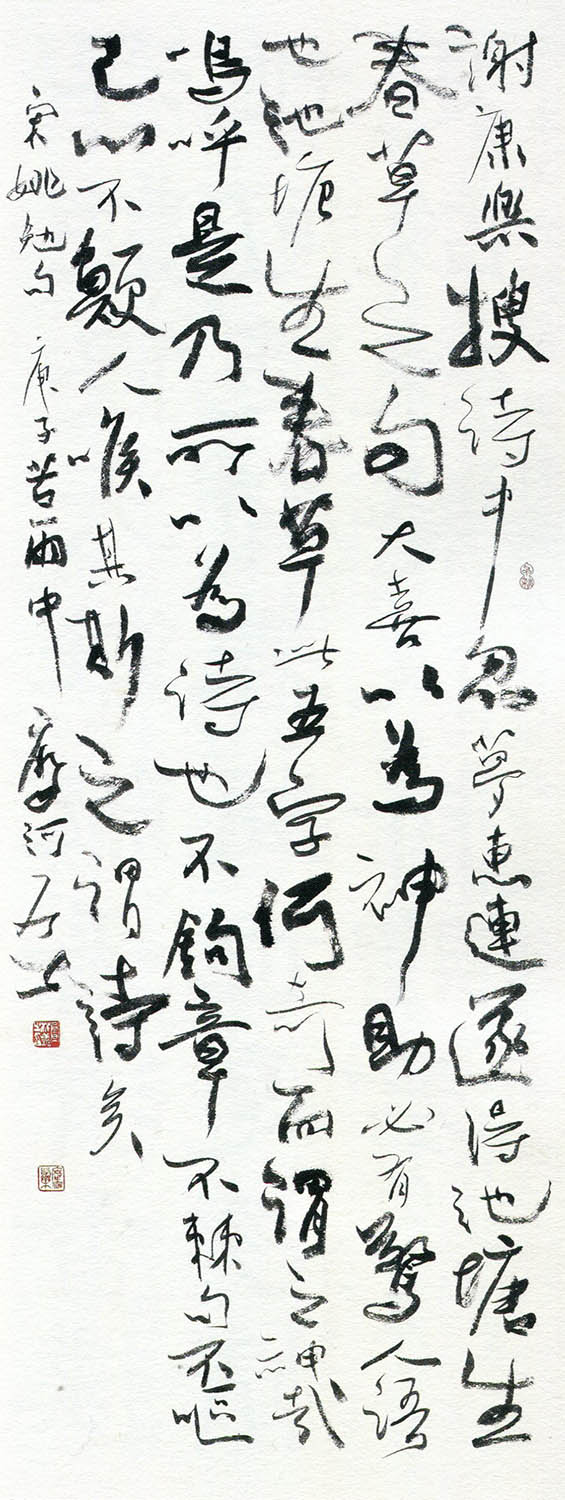 謝康樂搜詩中忽夢惠連遂得池塘生
春草之句大喜以為神助必有驚人語
也池塘生春草此五字何奇而謂之神哉
嗚呼是乃所以為詩也不鉤章不棘句不嘔
己心不顰人喉其斯之謂詩矣
宋姚勉句 庚子苦雨中 摩河居士